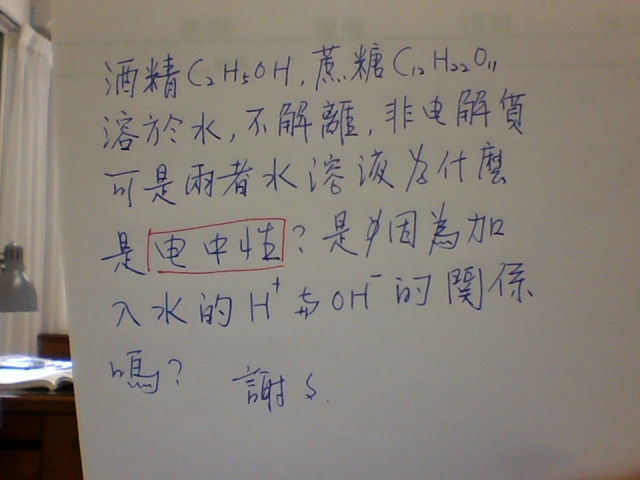 酒精C₂H₅OH,蔗糖C₁₂H₂₂O₁₁
溶於水,不解離,非电解質
可是兩者水溶液为什麼
是电中性?是因為加
入水的H⁺与OH⁻的關係
嗎? 謝